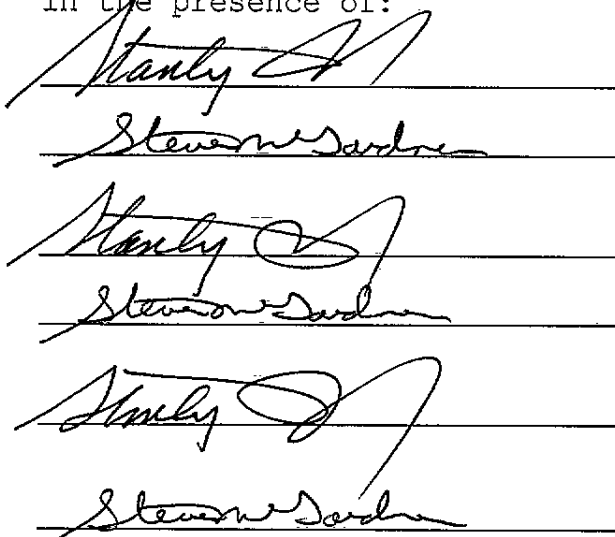 in the presence of:
Stanly
Steven M Gardner
Stanly
Steven M Gardner
Stanly
Steven M Gardner